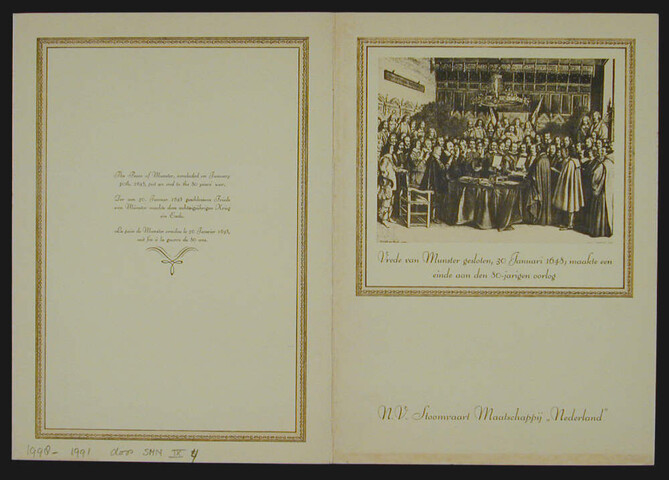 The Peace of Munster, concluded on January
30th, 1648, put an end to the 80 years' war.
Der am 30. Januar 1648 geschlossene Friede
von Münster machte dem achtzigjährigen Krieg
ein Ende.
La paix de Munster conclue le 30 Janvier 1648,
mit fin à la guerre de 80 ans.
Vrede van Munster gesloten, 30 Januari 1648; maakte een
einde aan den 80-jarigen oorlog
N.V. Stoomvaart Maatschappij „Nederland"
1990- 1991 door SMN IV 4